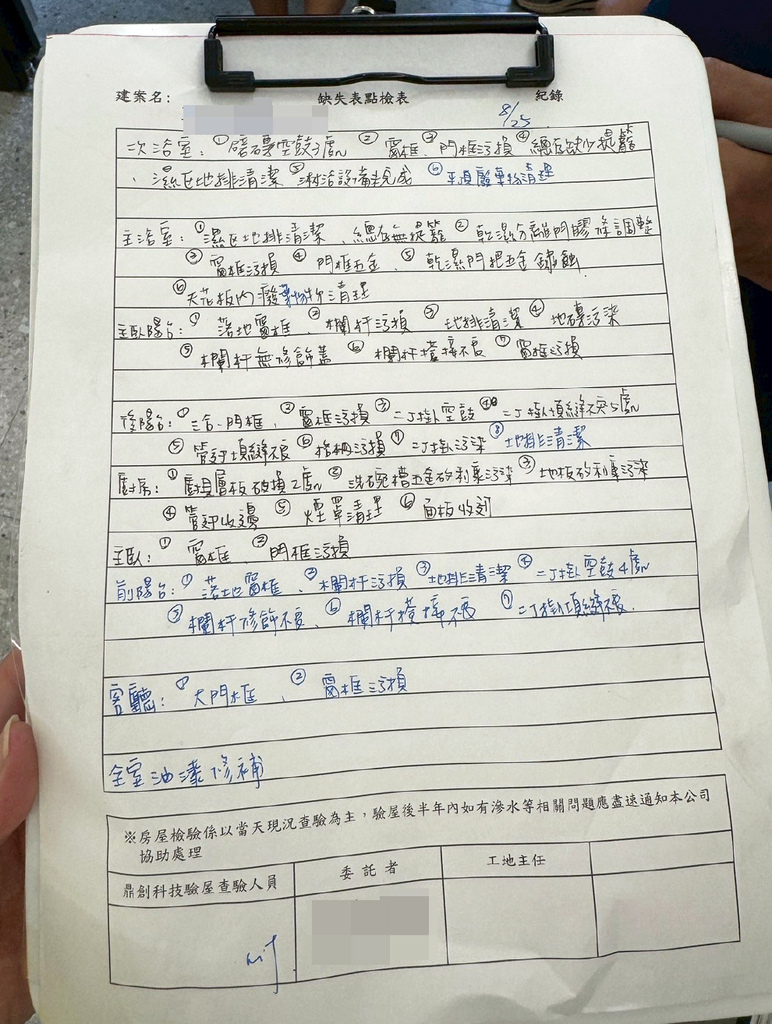 建案名： 缺失表點檢表 紀錄
8/25
次浴室：①磁磚空鼓3處 ②窗框、③門框污損 ④總存缺少提籠
、濕區地排清潔 ⑤淋浴設備未完成 ⑥平頂廢棄物清理
主浴室：①濕區地排清潔、總存無提籠 ②乾濕分離門膠條調整
③窗框污損 ④門框五金、⑤乾濕門把五金鏽蝕
⑥天花板內廢棄物清理
主臥陽台：①落地窗框、②欄杆污損 ③地排清潔 ④地磚污染
⑤欄杆無修飾蓋 ⑥欄杆搭接不良 ⑦窗框污損
後陽台：①三合一門框、②窗框污損 ③二丁掛空鼓 ④二丁掛填縫不良5處
⑤管路填縫不良 ⑥格柵污損 ⑦二丁掛污染 ⑧地排清潔
廚房：①廚具層板破損2處 ②洗碗槽五金矽利康污染 ③地板矽利康污染
④管路收邊 ⑤煙罩清理 ⑥面板收刮
主臥：①窗框 ②門框污損
前陽台：①落地窗框、②欄杆污損 ③地排清潔 ④二丁掛空鼓4處
⑤欄杆修飾不良、⑥欄杆搭接不良 ⑦二丁掛填縫不良.
客廳：①大門框、②窗框污損
全室油漆修補
※房屋檢驗係以當天現況查驗為主，驗屋後半年內如有滲水等相關問題應盡速通知本公司
協助處理
鼎創科技驗屋查驗人員 委託者 工地主任